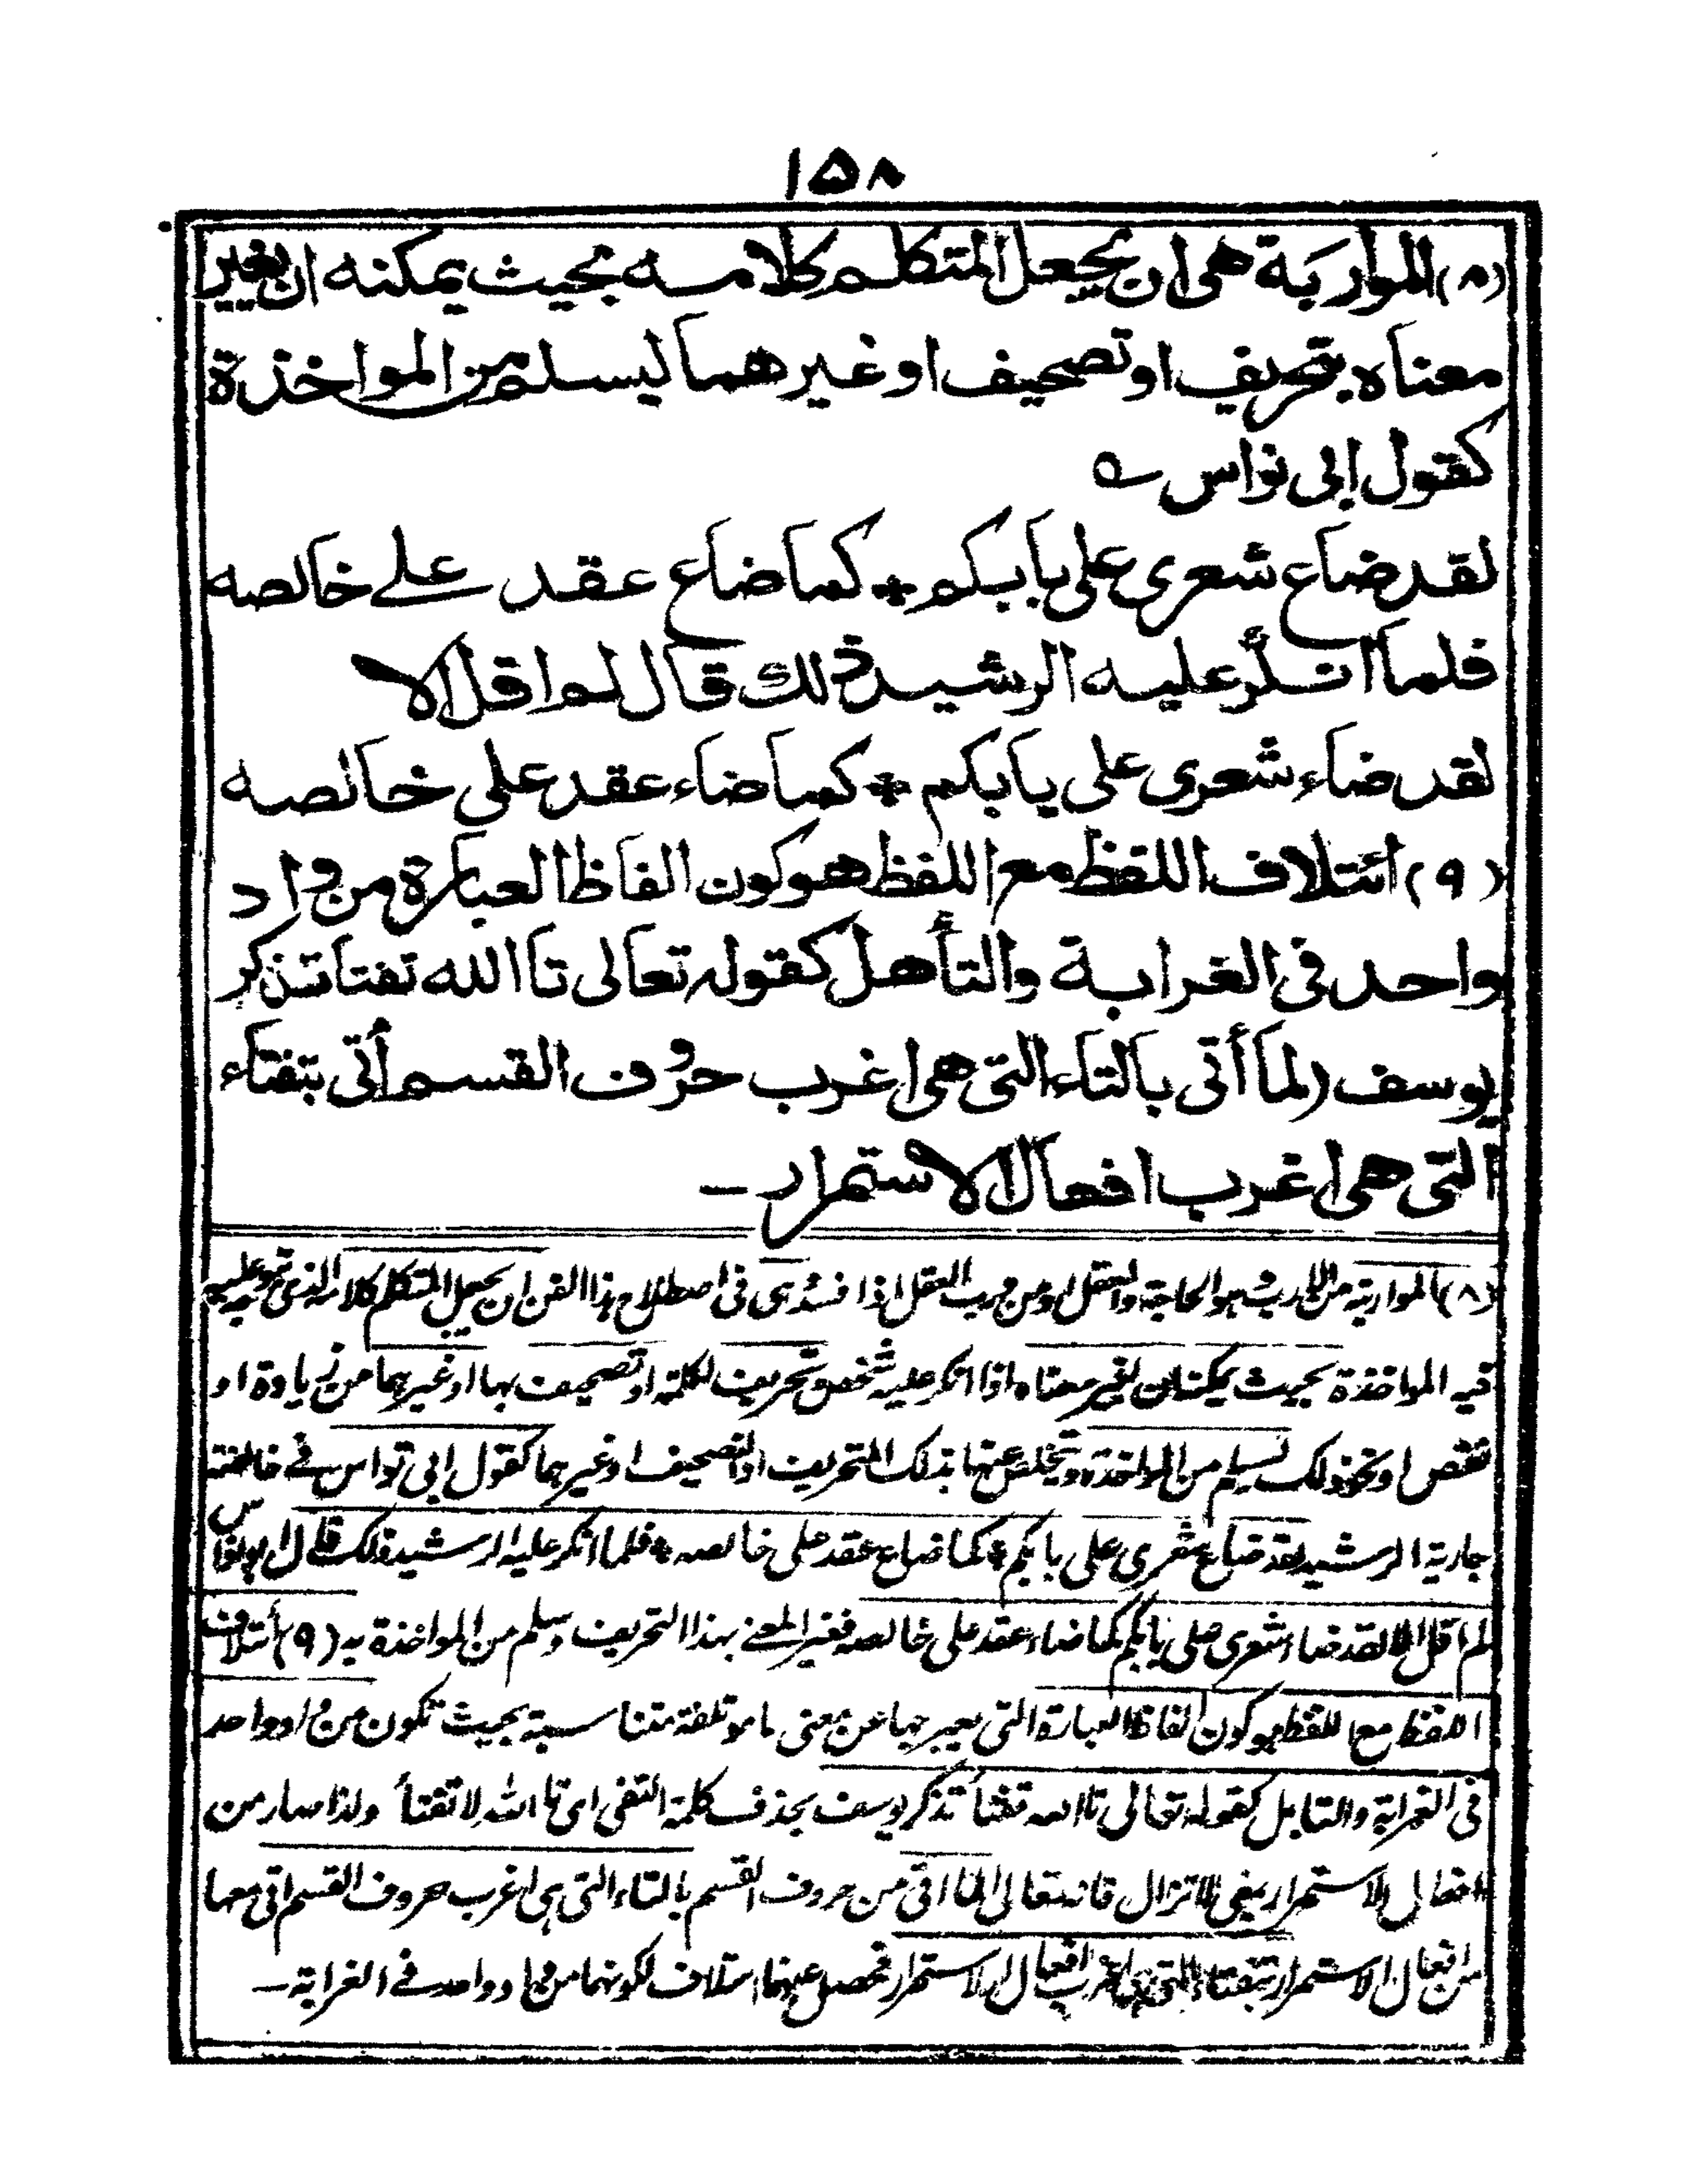 ١٥٨
(٨) المواربة هى ان يجعل المتكلم كلامه بحيث يمكنه ان يغير
معناه بتحريف او تصحيف او غيرهما ليسلم من المواخذة
كقول ابى نواس ؎
لقد ضاع شعرى على بابكم * كما ضاع عقد علے خالصه
فلما انكر عليه الرشيد ذلك قال لم اقل الا
لقد ضاء شعرى على بابكم * كما ضاء عقد على خالصه
(٩) ائتلاف اللفظ مع اللفظ هو كون الفاظ العبارة من واد
واحد فى الغرابة والتأهل كقوله تعالى تا الله تفتا تذكر
يوسف (لما أتى بالتاء التى هى اغرب حروف القسم أتى بتفتاء
التى هى اغرب افعال الاستمرار ـ
(٨) المواربة من الارب هو الحاجة والعقل او من ورب العقل اذا فسد هى فى اصطلاح هذا الفن ان يجعل المتكلم كلامه الذى عليه
فيه المواخذة بحيث يمكنه ان يغير معناه اذا انكر عليه شخص بتحريف لكلمة او تصحيف بها او غيرهما من زيادة او
نقص او نحو ذلك ليسلم من المواخذة ويتخلص عنها بذلك التحريف او التصحيف او غيرهما كقول ابى نواس فے خالصته
جارية الرشيد لقد ضاع شعرى على بابكم * كما ضاع عقد على خالصه * فلما انكر عليه الرشيد ذلك قال ابو نواس
لم اقل الا لقد ضاء شعرى على بابكم كما ضاء عقد على خالصه فغير المعنے بهذا التحريف وسلم من المواخذة به (٩) أئتلاف
اللفظ مع اللفظ هو كون الفاظ العبارة التى يعبر بها عن معنى ما موتلفة متناسبة بحيث تكون من واد واحد
فى الغرابة والتاهل كقوله تعالى تا الله تفتأ تذكر يوسف بحذف كلمة النفى اى تا الله لا تفتأ ولذا صار من
افعال الاستمرار بمعنى لا تزال فانه تعالى لما اتى من حروف القسم بالتاء التى هى اغرب حروف القسم اتى معها
من افعال الاستمرار بتفتاء التى هى اغرب افعال الاستمرار فحصل بينهما ائتلاف لكونهما من واد واحد فے الغرابة ـ